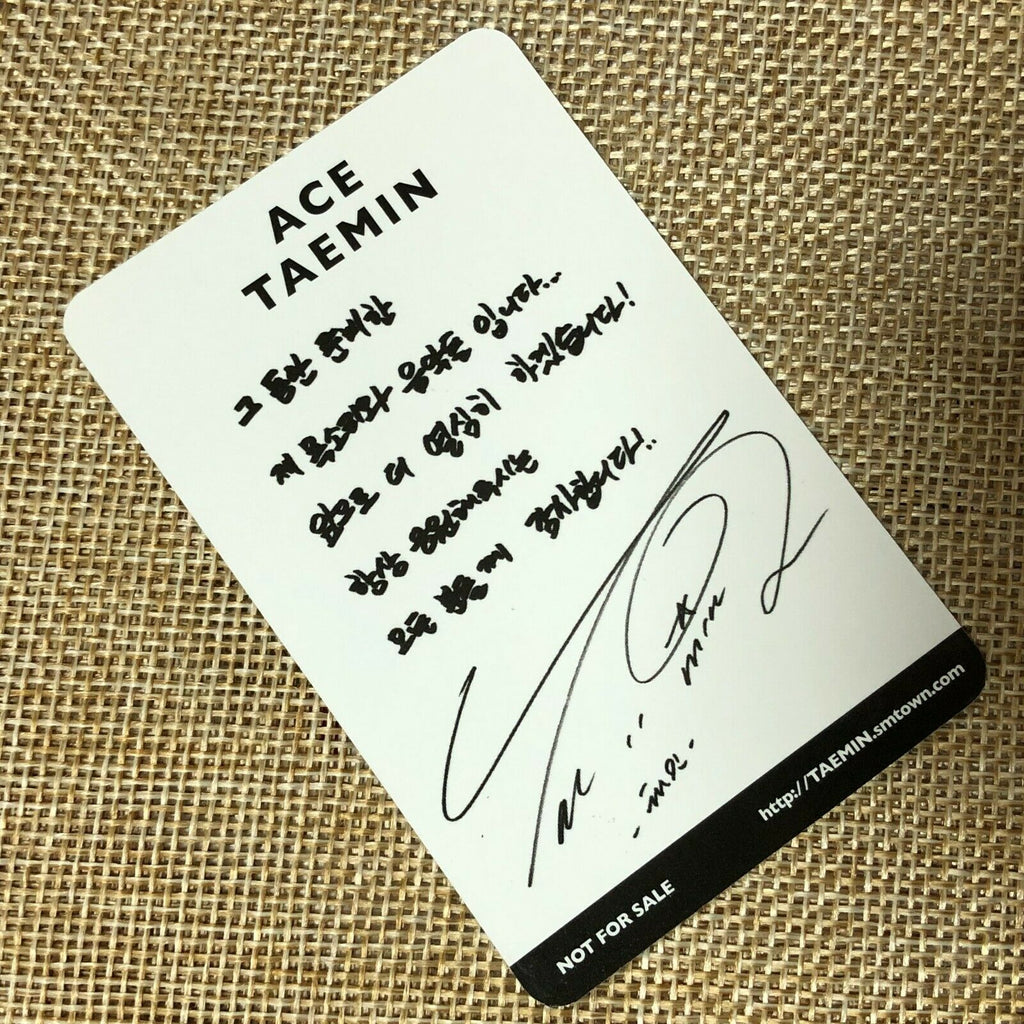 ACE
TAEMIN
그 동안 준비한
제 목소리와 음악들 입니다...
앞으로 더 열심히 하겠습니다!
항상 응원해주시는
모든 분들께 감사합니다!..
Tae min
http://TAEMIN.smtown.com
NOT FOR SALE